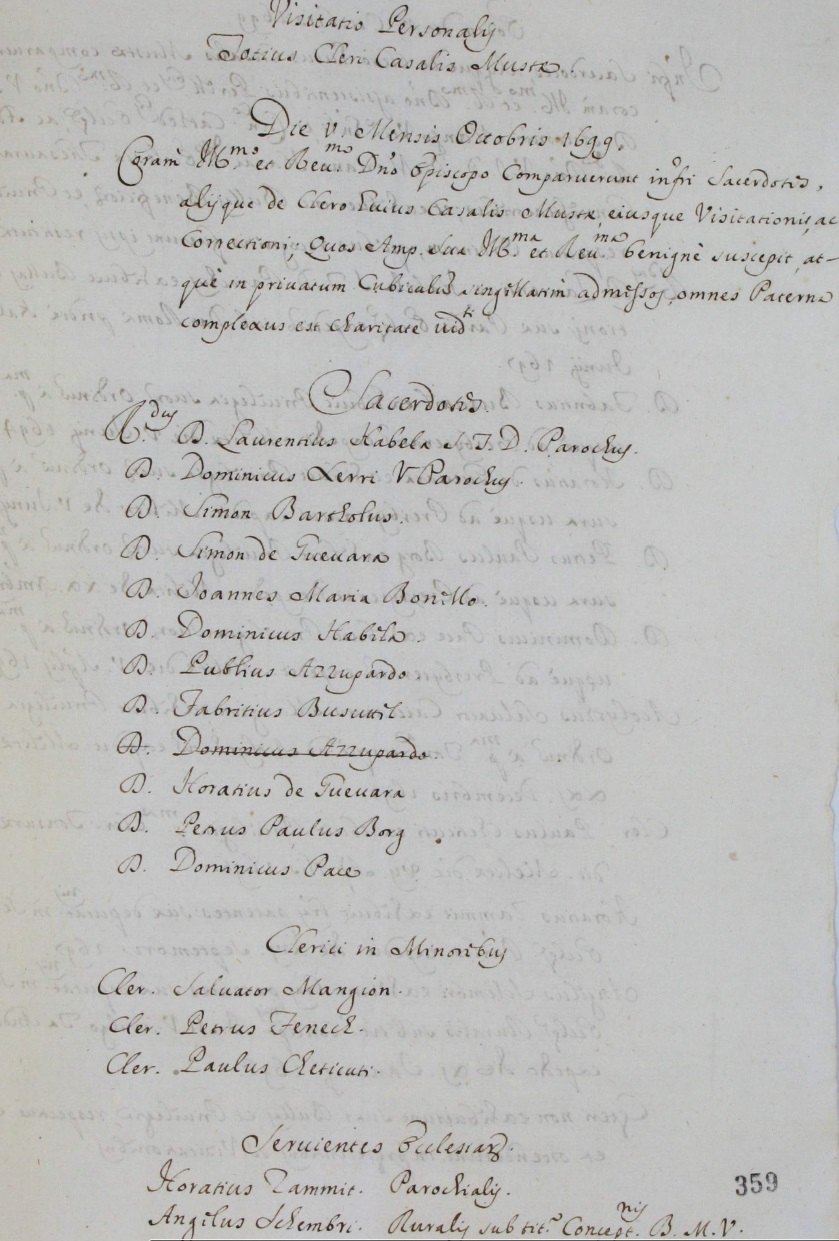 Visitatio Personalis
Totius Cleri Casalis Mustæ.
Die v. Mensis Octobris 1699.
Coram Ill.mo et Reu.mo Dno Episcopo Comparuerunt infri Sacerdotes,
alijque de Clero huius Casalis Mustæ, eiusque Visitationis, ac
Correctioni; Quos Amp. Sua Ill.ma et Reu.ma benignè suscepit, at-
què in priuatum Cubiculũ singillatim admissos, omnes Paterna
complexus est charitate
Sacerdotes
R.dus D. Laurentius Habela S. T. D. Parochus.
D. Dominicus Xerri V. Parochus.
D. Simon Bartholus.
D. Simon de Gueuara
D. Joannes Maria Bonillo.
D. Dominicus Habela.
D. Publius Azzupardo
D. Fabritius Busuttil
D. Dominicus Azzupardo.
D. Horatius de Gueuara
D. Petrus Paulus Borg
D. Dominicus Pace
Clerici in Minoribus
Cler. Saluator Mangion.
Cler. Petrus Fenech.
Cler. Paulus Cheticuti.
Seruientes Ecclesiarũ.
Horatius Zammit. Parochialis.
359
Angelus Schembri. Ruralis sub tit.o Concept.nis B. M. V.